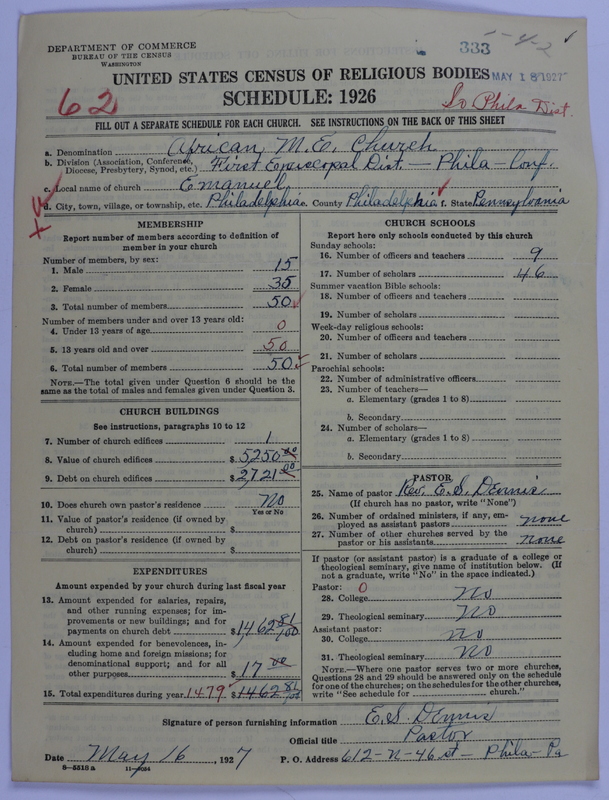 DEPARTMENT OF COMMERCE
BUREAU OF THE CENSUS
WASHINGTON
333
UNITED STATES CENSUS OF RELIGIOUS BODIES
MAY 18 1927
SCHEDULE: 1926
62
So Phila Dist.
FILL OUT A SEPARATE SCHEDULE FOR EACH CHURCH. SEE INSTRUCTIONS ON THE BACK OF THIS SHEET
a. Denomination African M.E. Church
b. Division (Association, Conference, Diocese, Presbytery, Synod, etc.) First Episcopal Dist. — Phila — Conf.
c. Local name of church Emanuel
d. City, town, village, or township, etc. Philadelphia e. County Philadelphia f. State Pennsylvania
MEMBERSHIP
Report number of members according to definition of
member in your church
Number of members, by sex:
1. Male 15
2. Female 35
3. Total number of members 50
Number of members under and over 13 years old:
4. Under 13 years of age 0
5. 13 years old and over 50
6. Total number of members 50
NOTE.—The total given under Question 6 should be the
same as the total of males and females given under Question 3.
CHURCH BUILDINGS
See instructions, paragraphs 10 to 12
7. Number of church edifices 1
8. Value of church edifices $5250 00
9. Debt on church edifices $2721 00
10. Does church own pastor's residence No
Yes or No
11. Value of pastor's residence (if owned by
church) $
12. Debt on pastor's residence (if owned by
church) $
EXPENDITURES
Amount expended by your church during last fiscal year
13. Amount expended for salaries, repairs,
and other running expenses; for im-
provements or new buildings; and for
payments on church debt $1462 81/100
14. Amount expended for benevolences, in-
cluding home and foreign missions; for
denominational support; and for all
other purposes $17 00
15. Total expenditures during year 1479 $1462 81/100
CHURCH SCHOOLS
Report here only schools conducted by this church
Sunday schools:
16. Number of officers and teachers 9
17. Number of scholars 46
Summer vacation Bible schools:
18. Number of officers and teachers
19. Number of scholars
Week-day religious schools:
20. Number of officers and teachers
21. Number of scholars
Parochial schools:
22. Number of administrative officers
23. Number of teachers—
a. Elementary (grades 1 to 8)
b. Secondary
24. Number of scholars—
a. Elementary (grades 1 to 8)
b. Secondary
PASTOR
25. Name of pastor Rev. E. S. Dennis
(If church has no pastor, write "None")
26. Number of ordained ministers, if any, em-
ployed as assistant pastors none
27. Number of other churches served by the
pastor or his assistants none
If pastor (or assistant pastor) is a graduate of a college or
theological seminary, give name of institution below. (If
not a graduate, write "No" in the space indicated.)
Pastor: 0
28. College No
29. Theological seminary No
Assistant pastor:
30. College No
31. Theological seminary No
NOTE.—Where one pastor serves two or more churches,
Questions 28 and 29 should be answered only on the schedule
for one of the churches; on the schedules for the other churches,
write "See schedule for church."
Signature of person furnishing information E. S. Dennis
Official title Pastor
Date May 16, 1927 P. O. Address 612-N-46 st — Phila-Pa
8—5518 a 11—9034